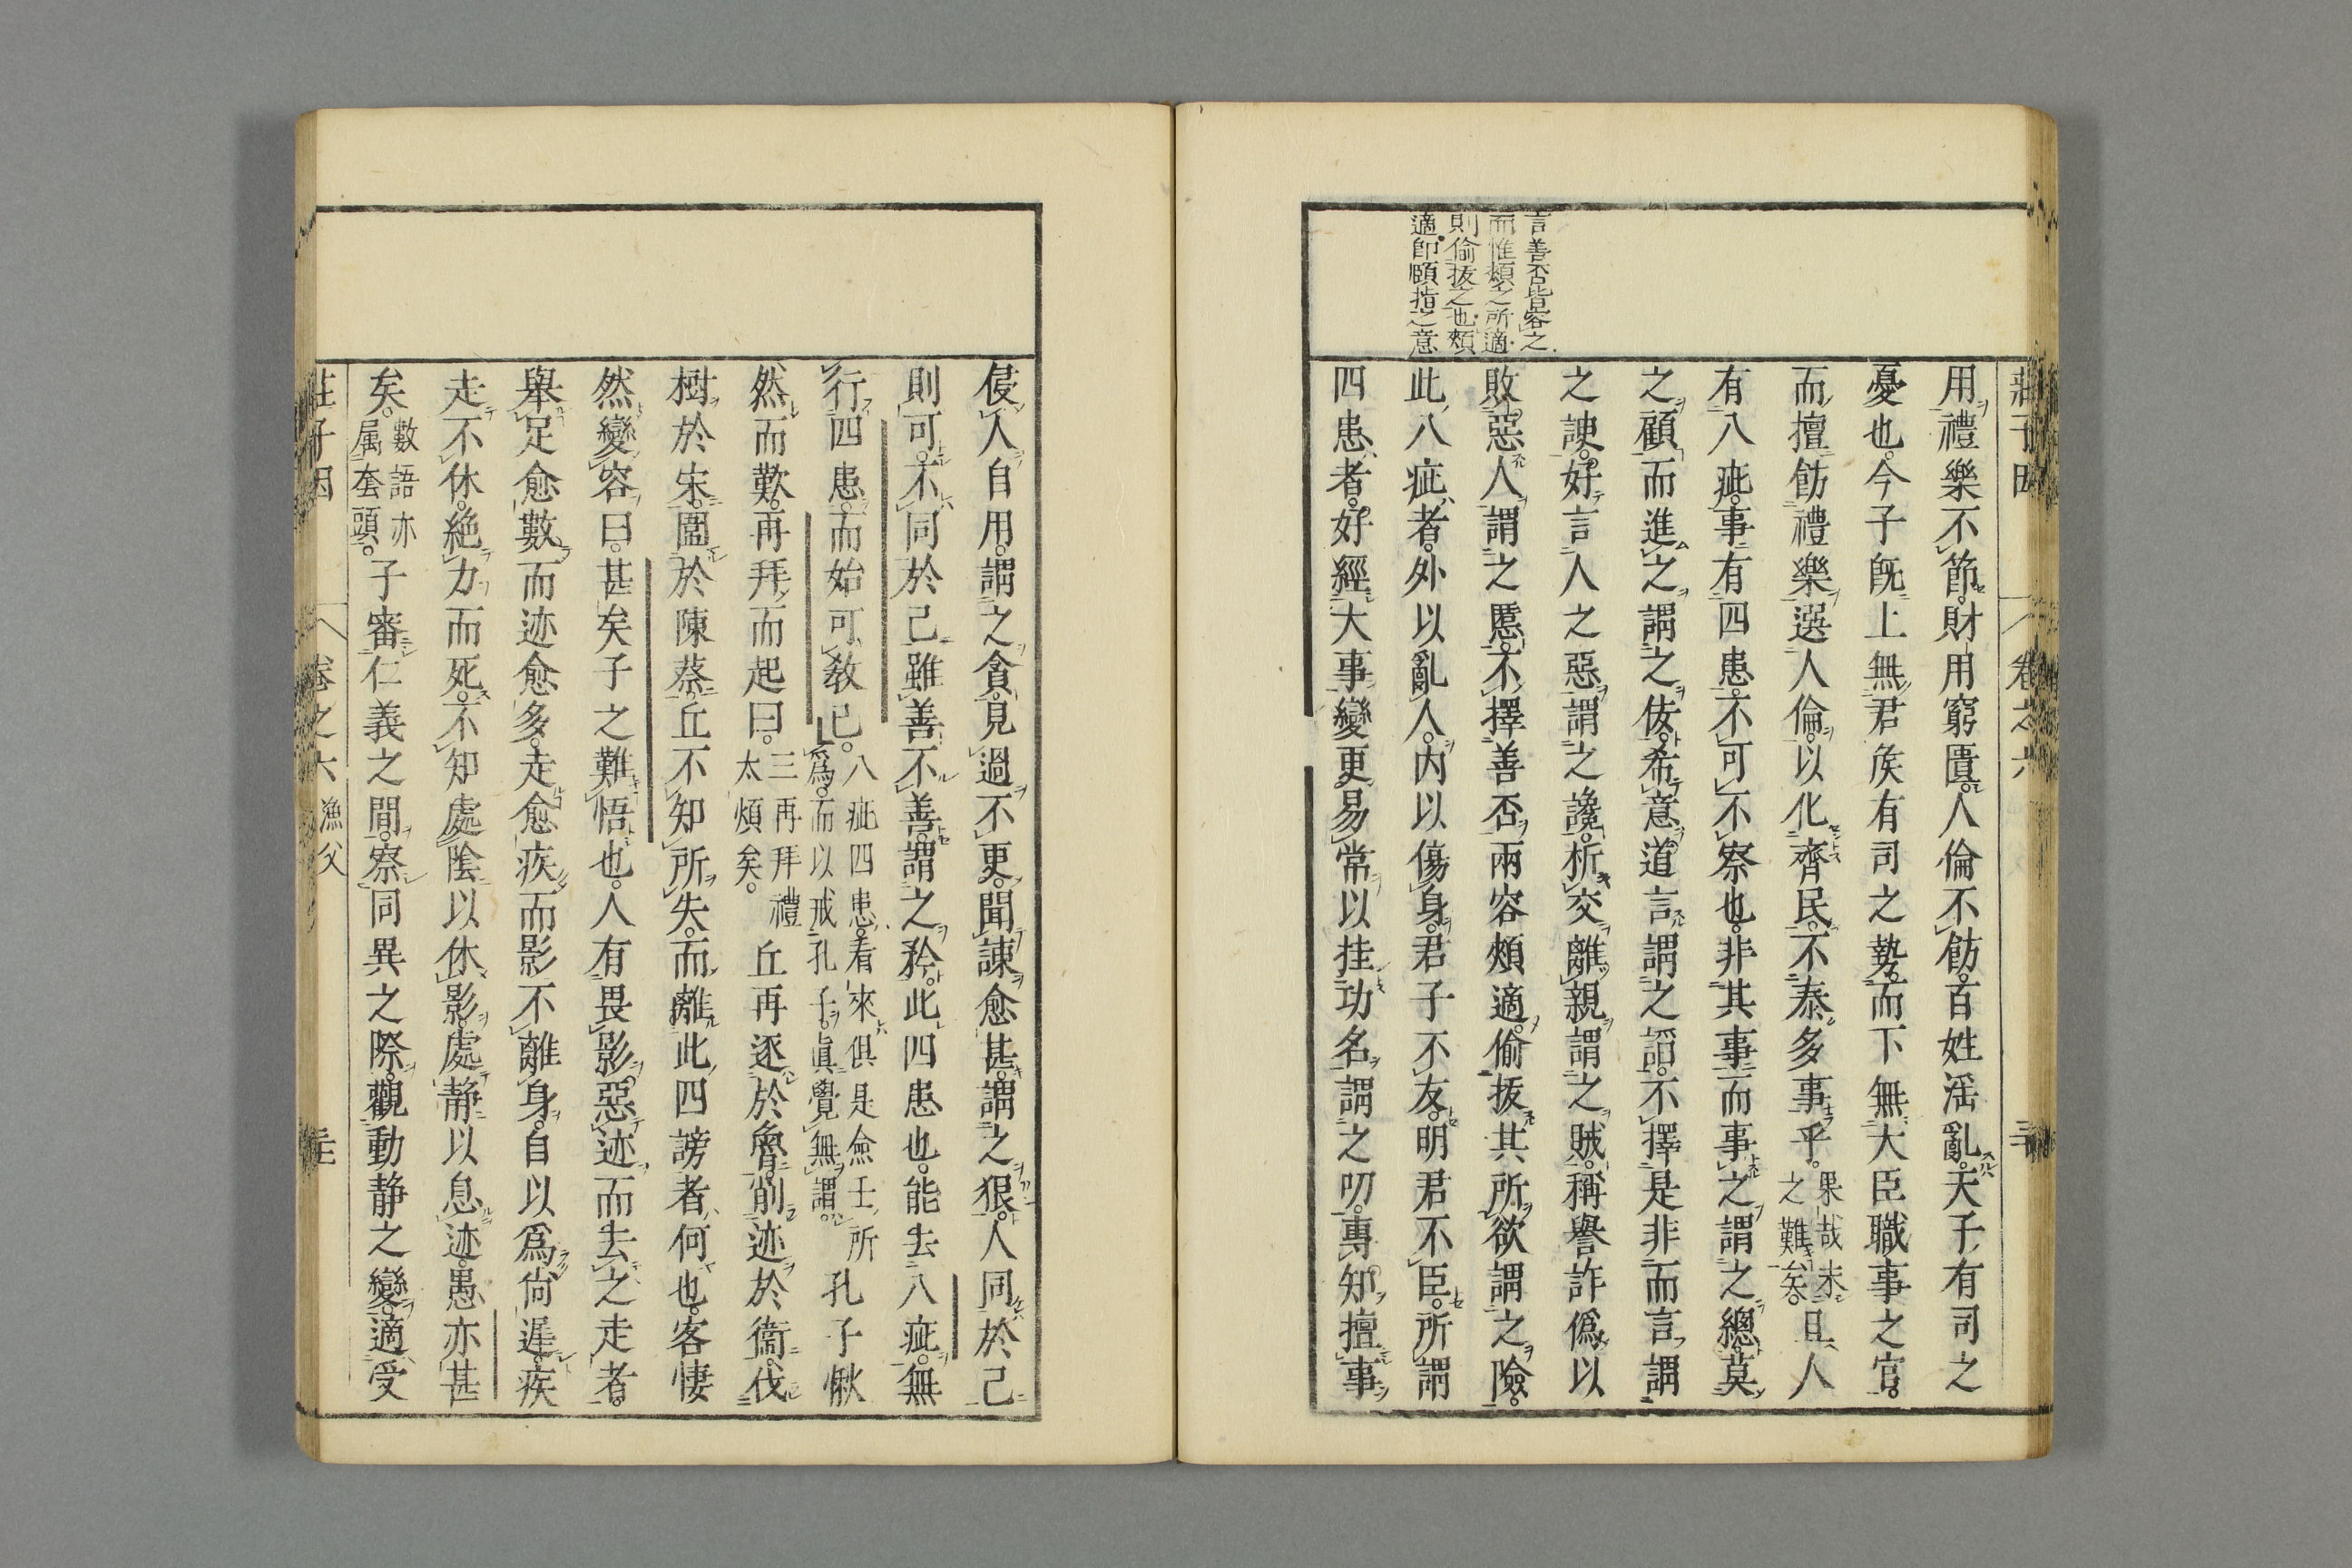 莊子因 卷之六
用禮樂不節。財用窮匱。人倫不飭。百姓淫亂。天子有司之
憂也。今子既上無君矦有司之勢。而下無大臣職事之官。
而擅飭禮樂。選人倫。以化齊民。不泰多事乎。果哉末之難矣。且人
有八疵。事有四患。不可不察也。非其事而事之謂之總。莫
之顧而進之謂之佞。希意道言謂之謟。不擇是非而言謂
之諛。好言人之惡謂之讒。析交離親謂之賊。稱譽詐僞以
敗惡人謂之慝。不擇善否。兩容頰適。偷拔其所欲謂之險。
此八疵者。外以亂人。内以傷身。君子不友。明君不臣。所謂
四患者。好經大事。變更易常。以挂功名。謂之叨。專知擅事
言善否皆容之
而惟頰之所適
則偷拔之也頰
適即頤指之意
侵人自用。謂之貪。見過不更。聞諫愈甚。謂之狠。人同於己
則可。不同於己。雖善不善。謂之矜。此四患也。能去八疵。無
行四患。而始可敎已。八疵四患。看來俱是僉壬所爲。而以戒孔子。眞覺無謂。孔子愀
然而歎。再拜而起曰。三再拜禮太煩矣。丘再逐於魯。削迹於衞。伐
樹於宋。圍於陳蔡。丘不知所失。而離此四謗者何也。客悽
然變容曰。甚矣子之難悟也。人有畏影惡迹而去之走者。
舉足愈數。而迹愈多。走愈疾。而影不離身。自以爲尙遲。疾
走不休。絶力而死。不知處陰以休影。處靜以息迹。愚亦甚
矣。數語亦属套頭。子審仁義之間。察同異之際。觀動靜之變。適受
莊子因 卷之六 漁父